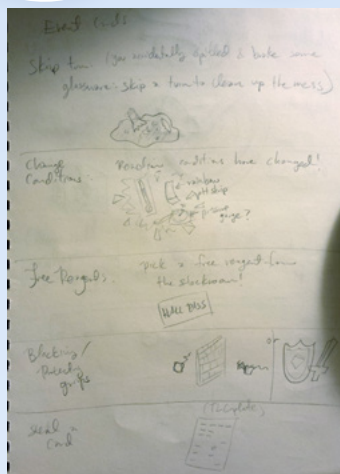 Event Cards
Skip turn (you accidentally spilled & broke some
glassware: skip a turn to clean up the mess)
Change Conditions: Reaction conditions have changed!
rainbow
gauge?
Free Reagents: pick a free reagent from
the stockroom!
HALL PASS
Blocking/
Protecting
groups
or
Steal a
Card
(Template)